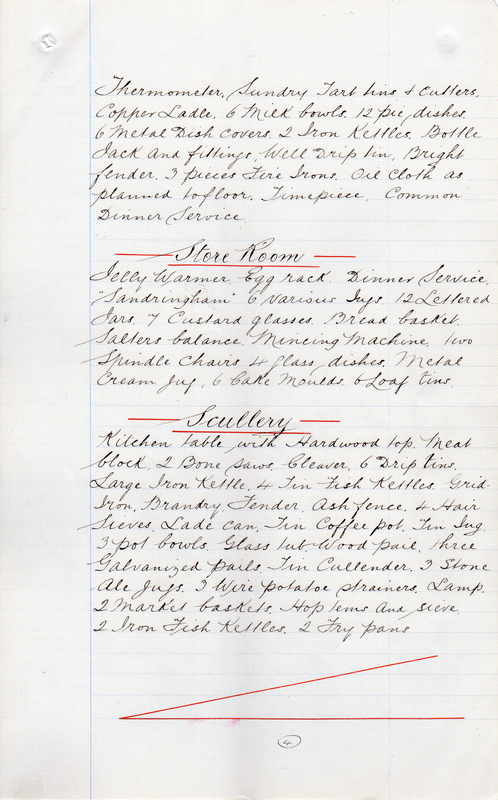 Thermometer, Sundry Tart tins & Cutters,
Copper Ladle. 6 Milk bowls. 12 pie dishes.
6 Metal Dish covers. 2 Iron Kettles. Bottle
Jack and fittings, Well Drip tin, Bright
fender. 3 pieces Fire Irons. Oil Cloth as
planned to floor. Timepiece. Common
Dinner Service.
Store Room
Jelly Warmer. Egg rack. Dinner Service.
"Sandringham" 6 various Jugs. 12 Lettered
Jars. 7 Custard glasses. Bread basket.
Salters balance. Mincing Machine. two
Spindle Chairs 4 glass dishes. Metal
Cream Jug, 6 Cake Moulds. 6 Loaf tins.
Scullery
Kitchen table with Hardwood top. Meat
block. 2 Bone saws. Cleaver. 6 Drip tins.
Large Iron Kettle. 4 Tin Fish Kettles. Grid-
Iron, Brandry, Fender, Ash fence. 4 Hair
Sieves. Lade can. Tin Coffee pot. Tin Jug
3 pot bowls. Glass tub. Wood pail. three
Galvanized pails. Tin Cullender. 3 Stone
Ale Jugs. 3 Wire potatoe strainers. Lamp.
2 Market baskets. Hop tems and sieve.
2 Iron Fish Kettles. 2 Fry pans
4